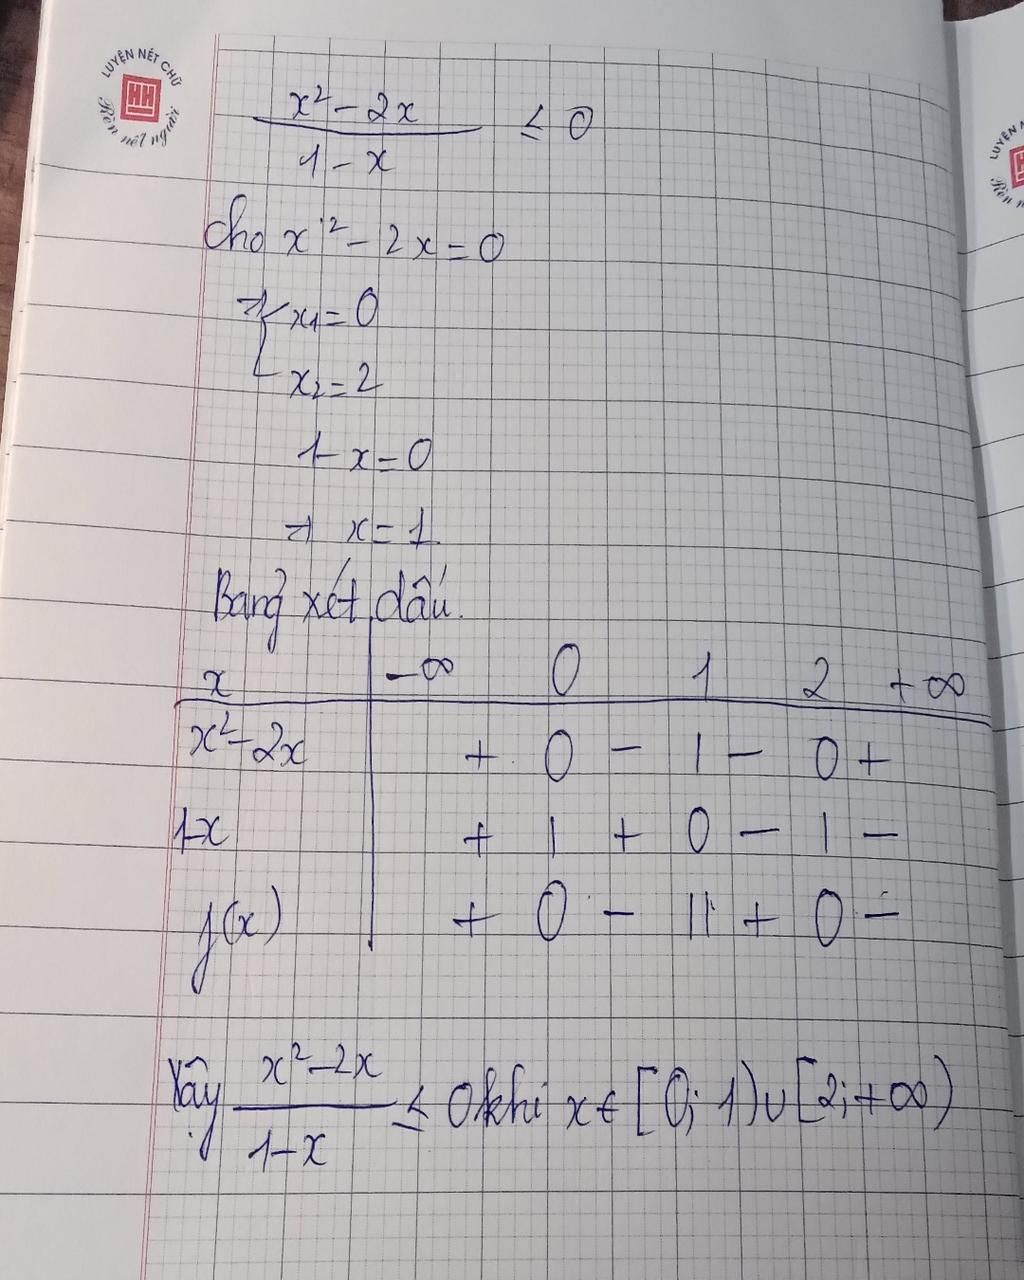 LUYỆN NÉT CHỮ
HH
Rèn nết người
x² - 2x / 1 - x ≤ 0
Cho x² - 2x = 0
⇒ [ x₁ = 0
x₂ = 2
1 - x = 0
⇒ x = 1
Bảng xét dấu.
x | -∞ 0 1 2 +∞
x² - 2x | + 0 - | - 0 +
1-x | + | + 0 - | -
f(x) | + 0 - || + 0 -
Vậy x² - 2x / 1 - x ≤ 0 khi x ∈ [0; 1) ∪ [2; +∞)